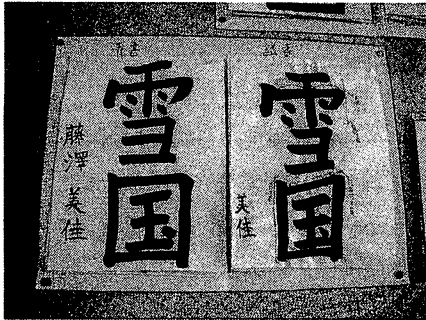 雪国
美佳
雪国
藤澤 美佳